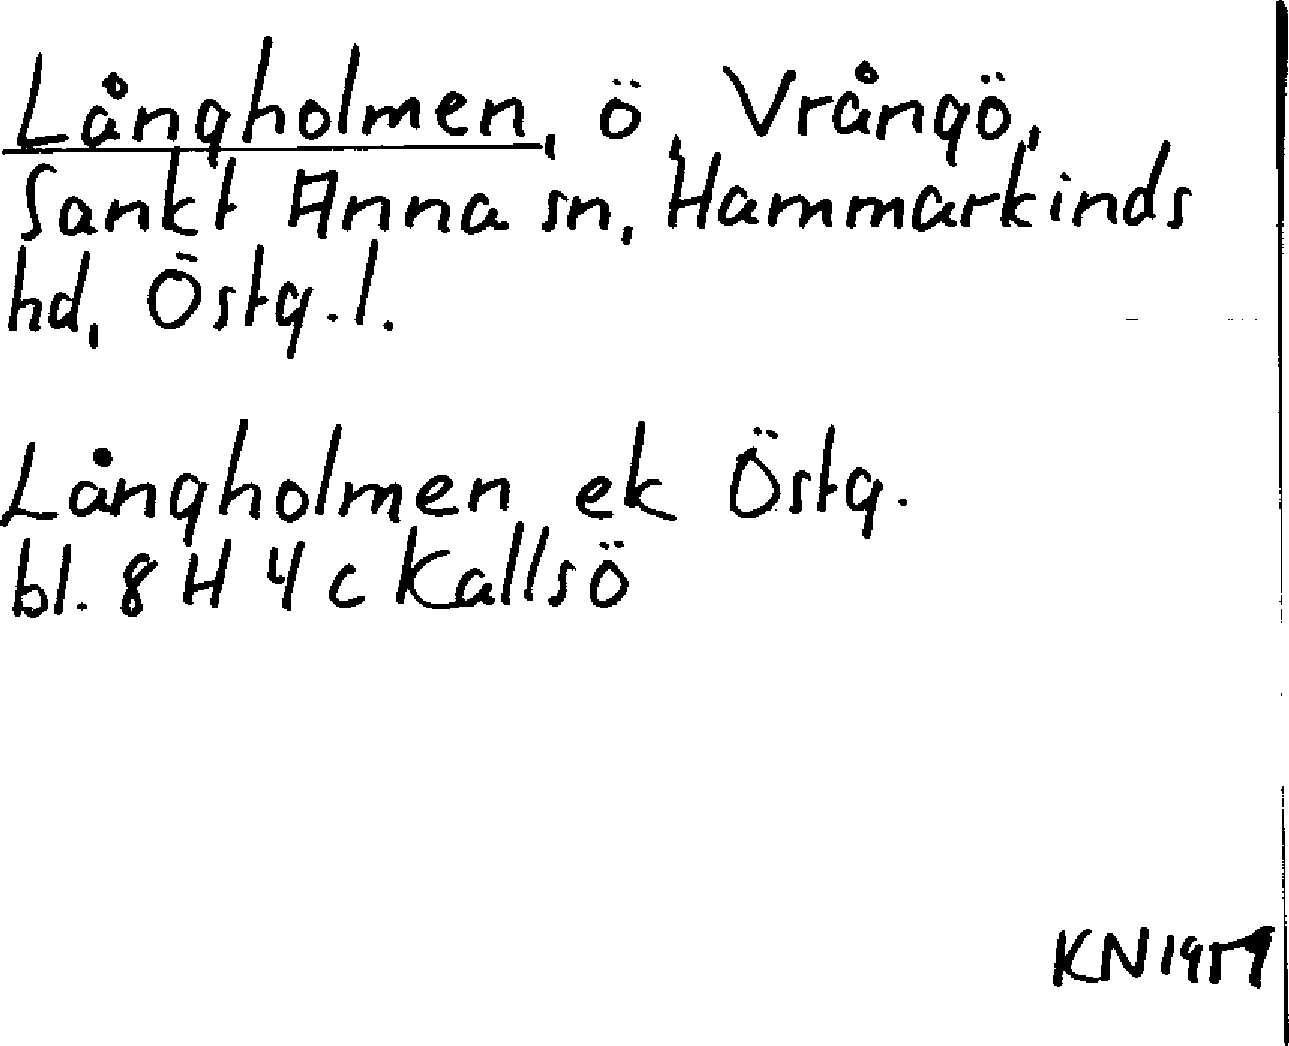 Långholmen, ö, Vrångö,
Sankt Anna sn, Hammarkinds
hd, Östg. l.
Långholmen ek Östg.
bl. 8 H 4 c Kallsö
KN